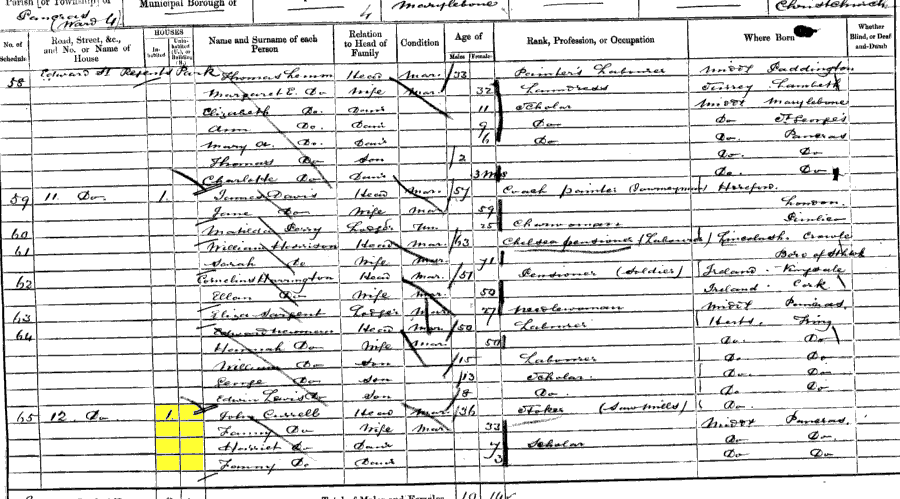 Parish [or Township] of
Pancras
(Ward 4)
Municipal Borough of
4
Marylebone
Christchurch
No. of Schedule
Road, Street, &c., and No. or Name of House
HOUSES
Inhabited
Uninhabited (U.), or Building (B.)
Name and Surname of each Person
Relation to Head of Family
Condition
Age of
Males
Females
Rank, Profession, or Occupation
Where Born
Whether Blind, or Deaf-and-Dumb
58 Edward St Regents Park Thomas Head Mar. 33 Painter's Labourer Middx Paddington
Margaret E. Do Wife Mar. 32 Laundress Surrey Lambeth
Elizabeth Do Daur 11 Scholar Middx Marylebone
Ann Do. Daur 9 Do Do St George's
Mary A. Do. Daur 6 Do Do. Pancras
Thomas Do Son 2 Do. Do
Charlotte Do Daur 3 Mos Do. Do
59 11 Do. 1 James Davis Head Mar. 57 Coach painter (Journeyman) Hereford.
Jane Do Wife Mar 59 London
60 Matilda Perry Lodger Un. 25 Charwoman Pimlico
61 William Harrison Head Mar. 63 Chelsea pensioner (Labourer) Lincolnsh. Crowle
Sarah Do Wife Mar. 71 Boro of
62 Cornelius Harrington Head Mar. 51 Pensioner (Soldier) Ireland Kingsale
Ellan Do Wife Mar. 50 Ireland Cork
63 Eliza Sargent Lodger Mar 27 Needlewoman Middx Pancras
64 Edward Head Mar 50 Labourer Herts. Tring
Hannah Do Wife Mar. 50 Do. Do
William Do Son 15 Labourer Do Do
George Do Son 13 Scholar Do. Do
Edwin Lewis Do Son 8 Do. Do. Do
65 12 Do 1 John Currell Head Mar. 36 Stoker (Saw Mills) Do.
Fanny Do Wife Mar. 33 Middx Pancras.
Harriet Do Daur 7 Scholar Do Do
Fanny Do Daur 3 Do Do
Total of Males and Females